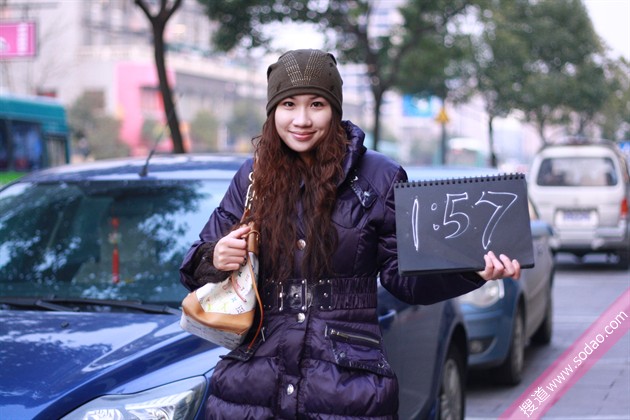 1:57
搜道 www.sodao.com